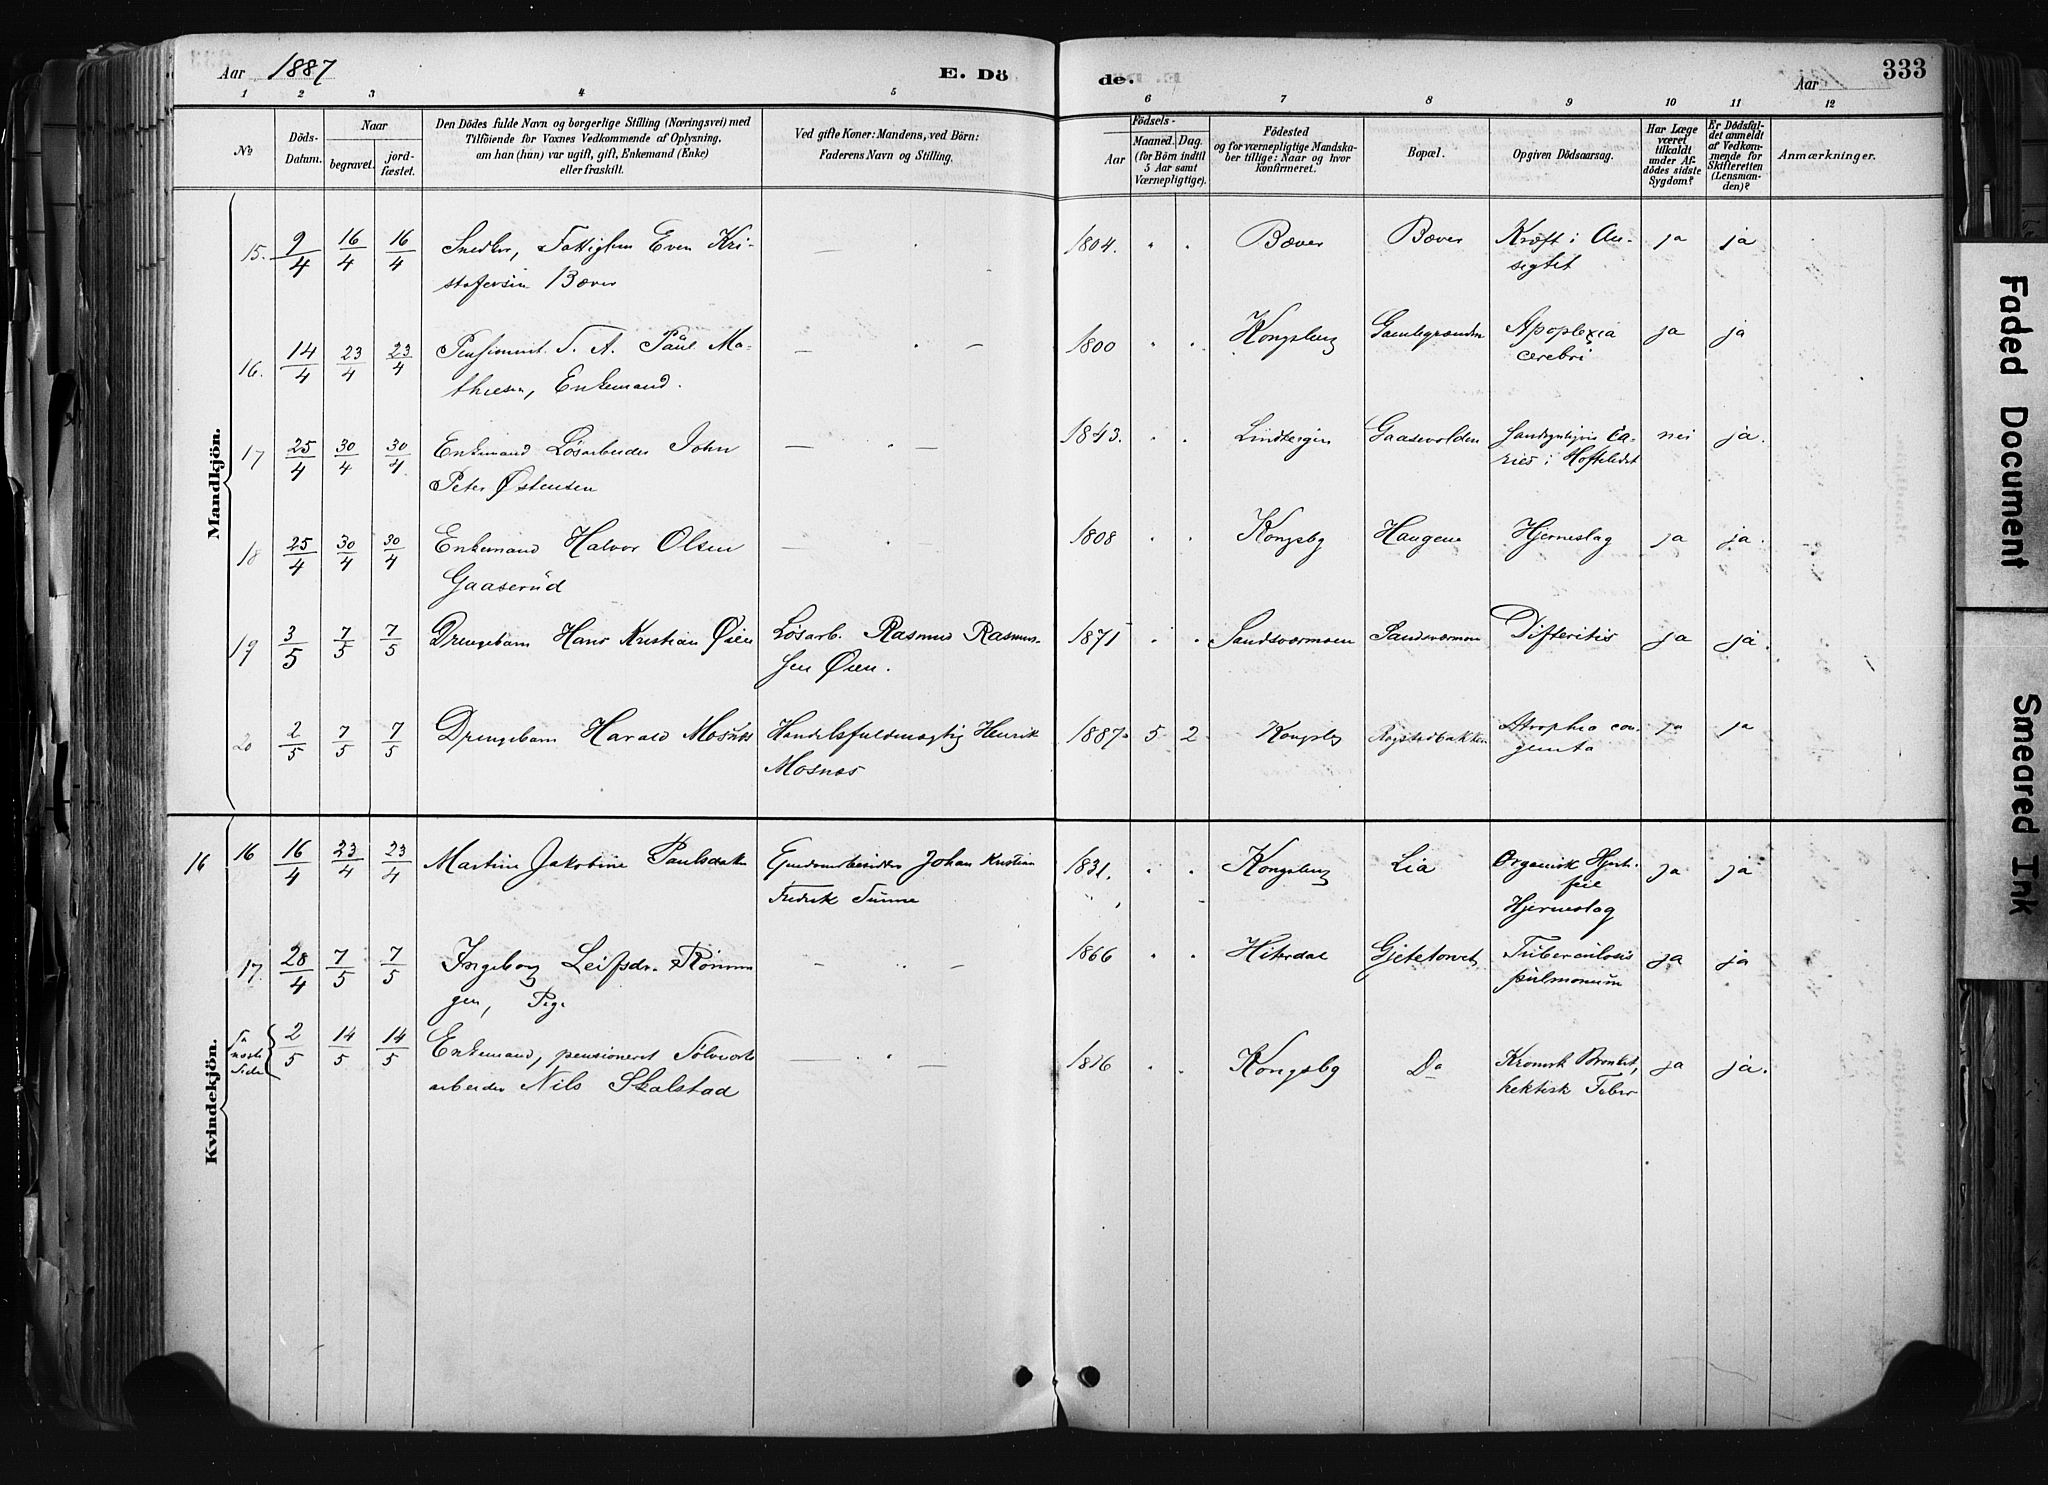 Aar 1887
E. Dö
de.
Aar
333
1 2 3 4 5 6 7 8 9 10 11 12
No
Döds-
Datum.
Naar
begravet.
jord-
fæstet.
Den Dödes fulde Navn og borgerlige Stilling (Næringsvei) med
Tilföiende for Voxnes Vedkommende af Oplysning,
om han (hun) var ugift, gift, Enkemand (Enke)
eller fraskilt.
Ved gifte Koner: Mandens, ved Börn:
Faderens Navn og Stilling.
Födsels-
Aar
Maaned. Dag.
(for Börn indtil
5 Aar samt
Værnepligtige).
Födested
og for værnepligtige Mandska-
ber tillige: Naar og hvor
konfirmeret.
Bopæl.
Opgiven Dödsaarsag.
Har Læge
været
tilkaldt
under Af-
dödes sidste
Sygdom?
Er Dödsfal-
det anmeldt
af Vedkom-
mende for
Skifteretten
(Lensman-
den)?
Anmærkninger.
Mandkjön.
15. 9/4 16/4 16/4 Snedker, Fattiglem Even Kri-
stofersen Bæver
1804. Bæver Bæver Kræft i An-
sigtet ja ja
16. 14/4 23/4 23/4 Pensionist T. A. Paul Ma-
thiesen, Enkemand.
1800 Kongsberg Gamlegrænden Apoplexia
cerebri ja ja
17 25/4 30/4 30/4 Enkemand Løsarbeider John
Peter Østensen
1843. Gaasevolden Ca-
ries i Hofteledet nei ja.
18 25/4 30/4 30/4 Enkemand Halvor Olsen
Gaaserud
1808 Kongsbg Haugene Hjerneslag ja ja.
19 3/5 7/5 7/5 Drengebarn Hans Kristian Øien Løsarb. Rasmus Rasmus-
sen Øien.
1871 Sandsværmoen Sandsværmoen Difteritis ja ja.
20 2/5 7/5 7/5 Drengebarn Harald Mosnæs Handelsfuldmægtig Henrik
Mosnæs
1887 5 2 Kongsbg Atrophia con-
genita ja ja
Kvindekjön.
16 16 16/4 23/4 23/4 Martine Jakobine Paulsdatter Eiendomsbesidder Johan Kristian
Fredrik
1831. Kongsberg Lia Organisk Hjerte-
feil
Hjerneslag ja ja
17. 28/4 7/5 7/5 Ingeborg Leifsdr.
gen, Pige
1866 Hiterdal Gjetetorvet Tuberculosis
pulmonum ja ja
Fra
næste
Side
2/5 14/5 14/5 Enkemand, pensioneret Sølvverks
arbeider Nils Skalstad
1816 Kongsbg Do Kronisk Bronkit,
hektisk Feber ja ja.
Faded Document
Smeared Ink